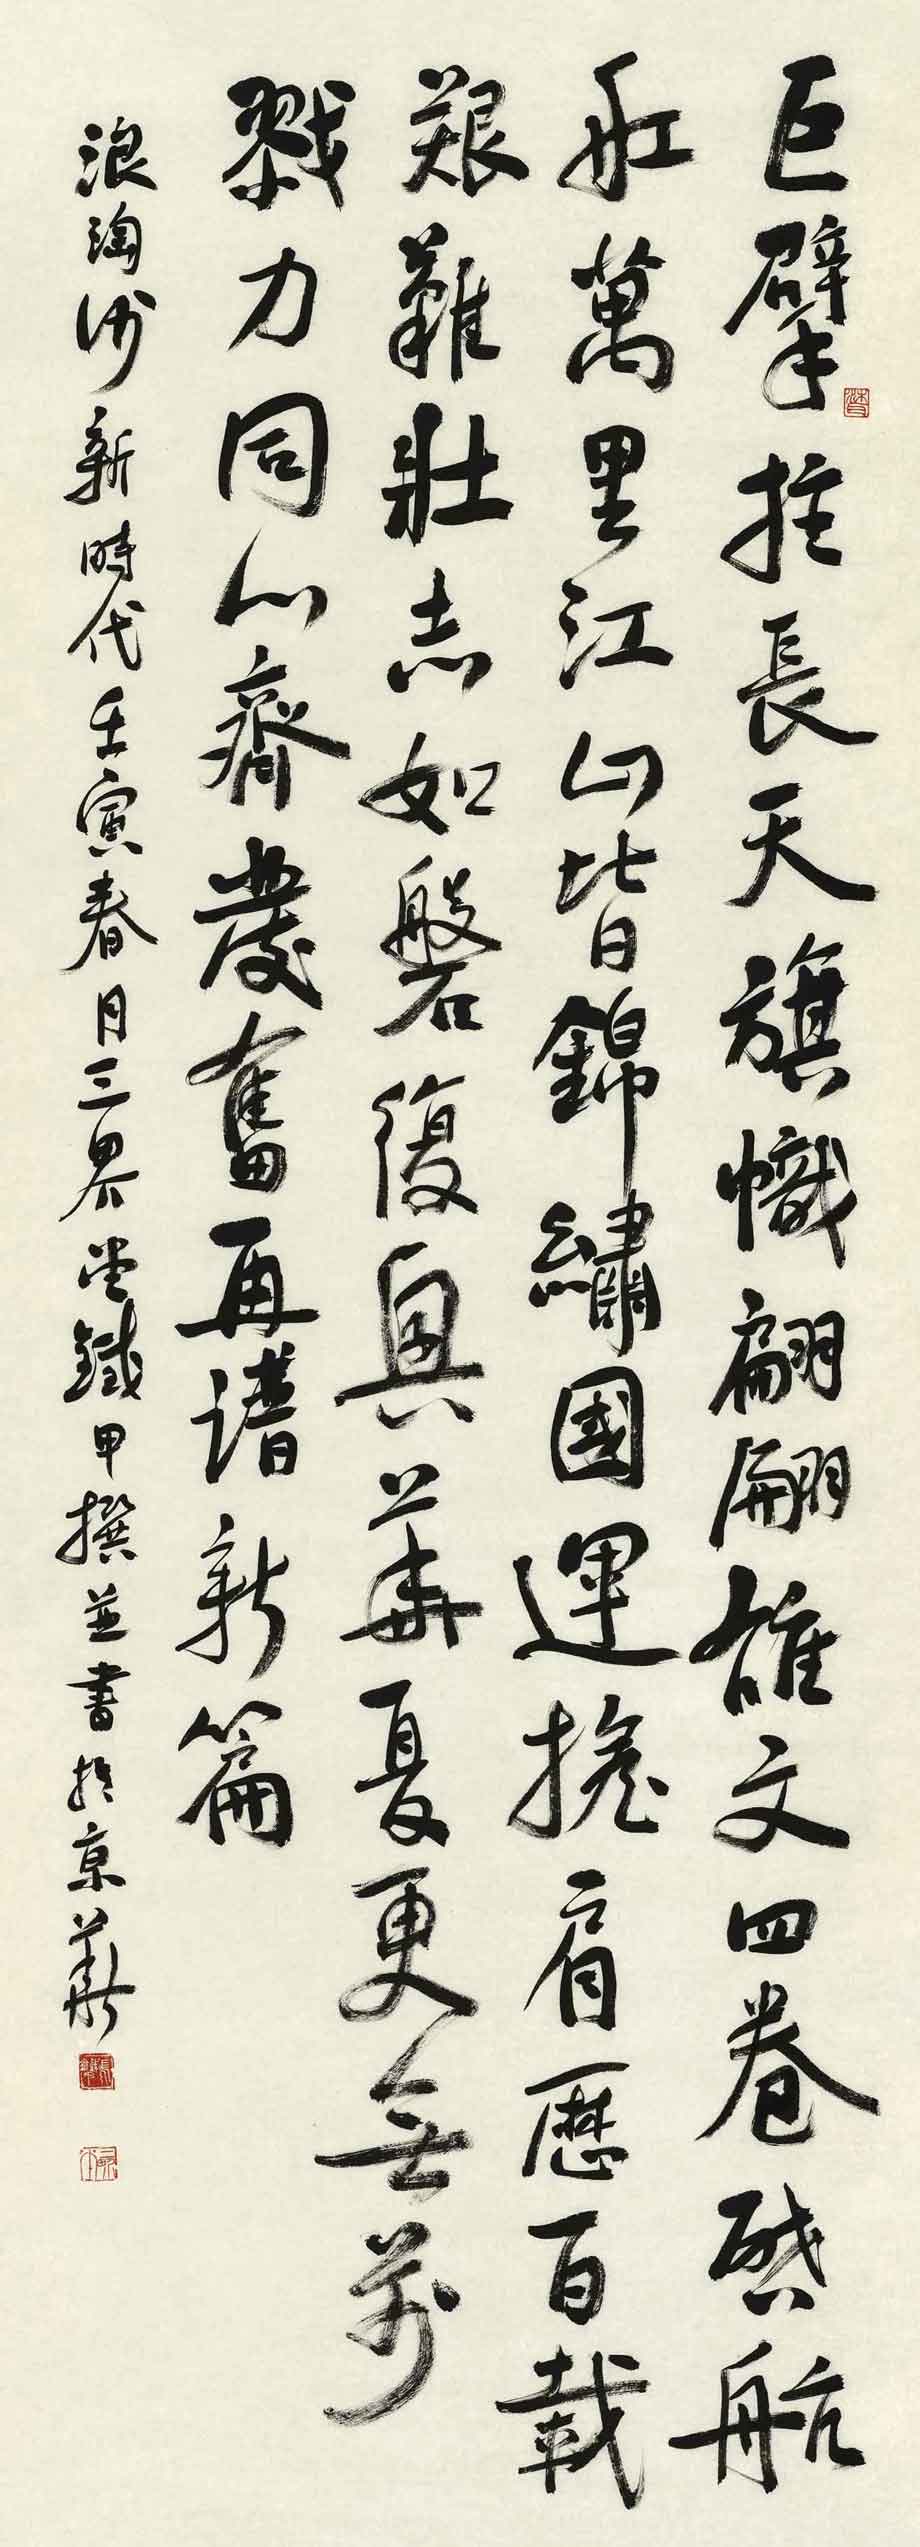 巨擘擎長天旗幟翩翩雄文四卷啓航
舡萬里江山皆錦繡國運擔肩歷百載
艱難壯志如磐復興華夏更無前
戮力同心齊發奮再譜新篇
浪淘沙新時代壬寅春月三界堂鐵甲撰並書於京華